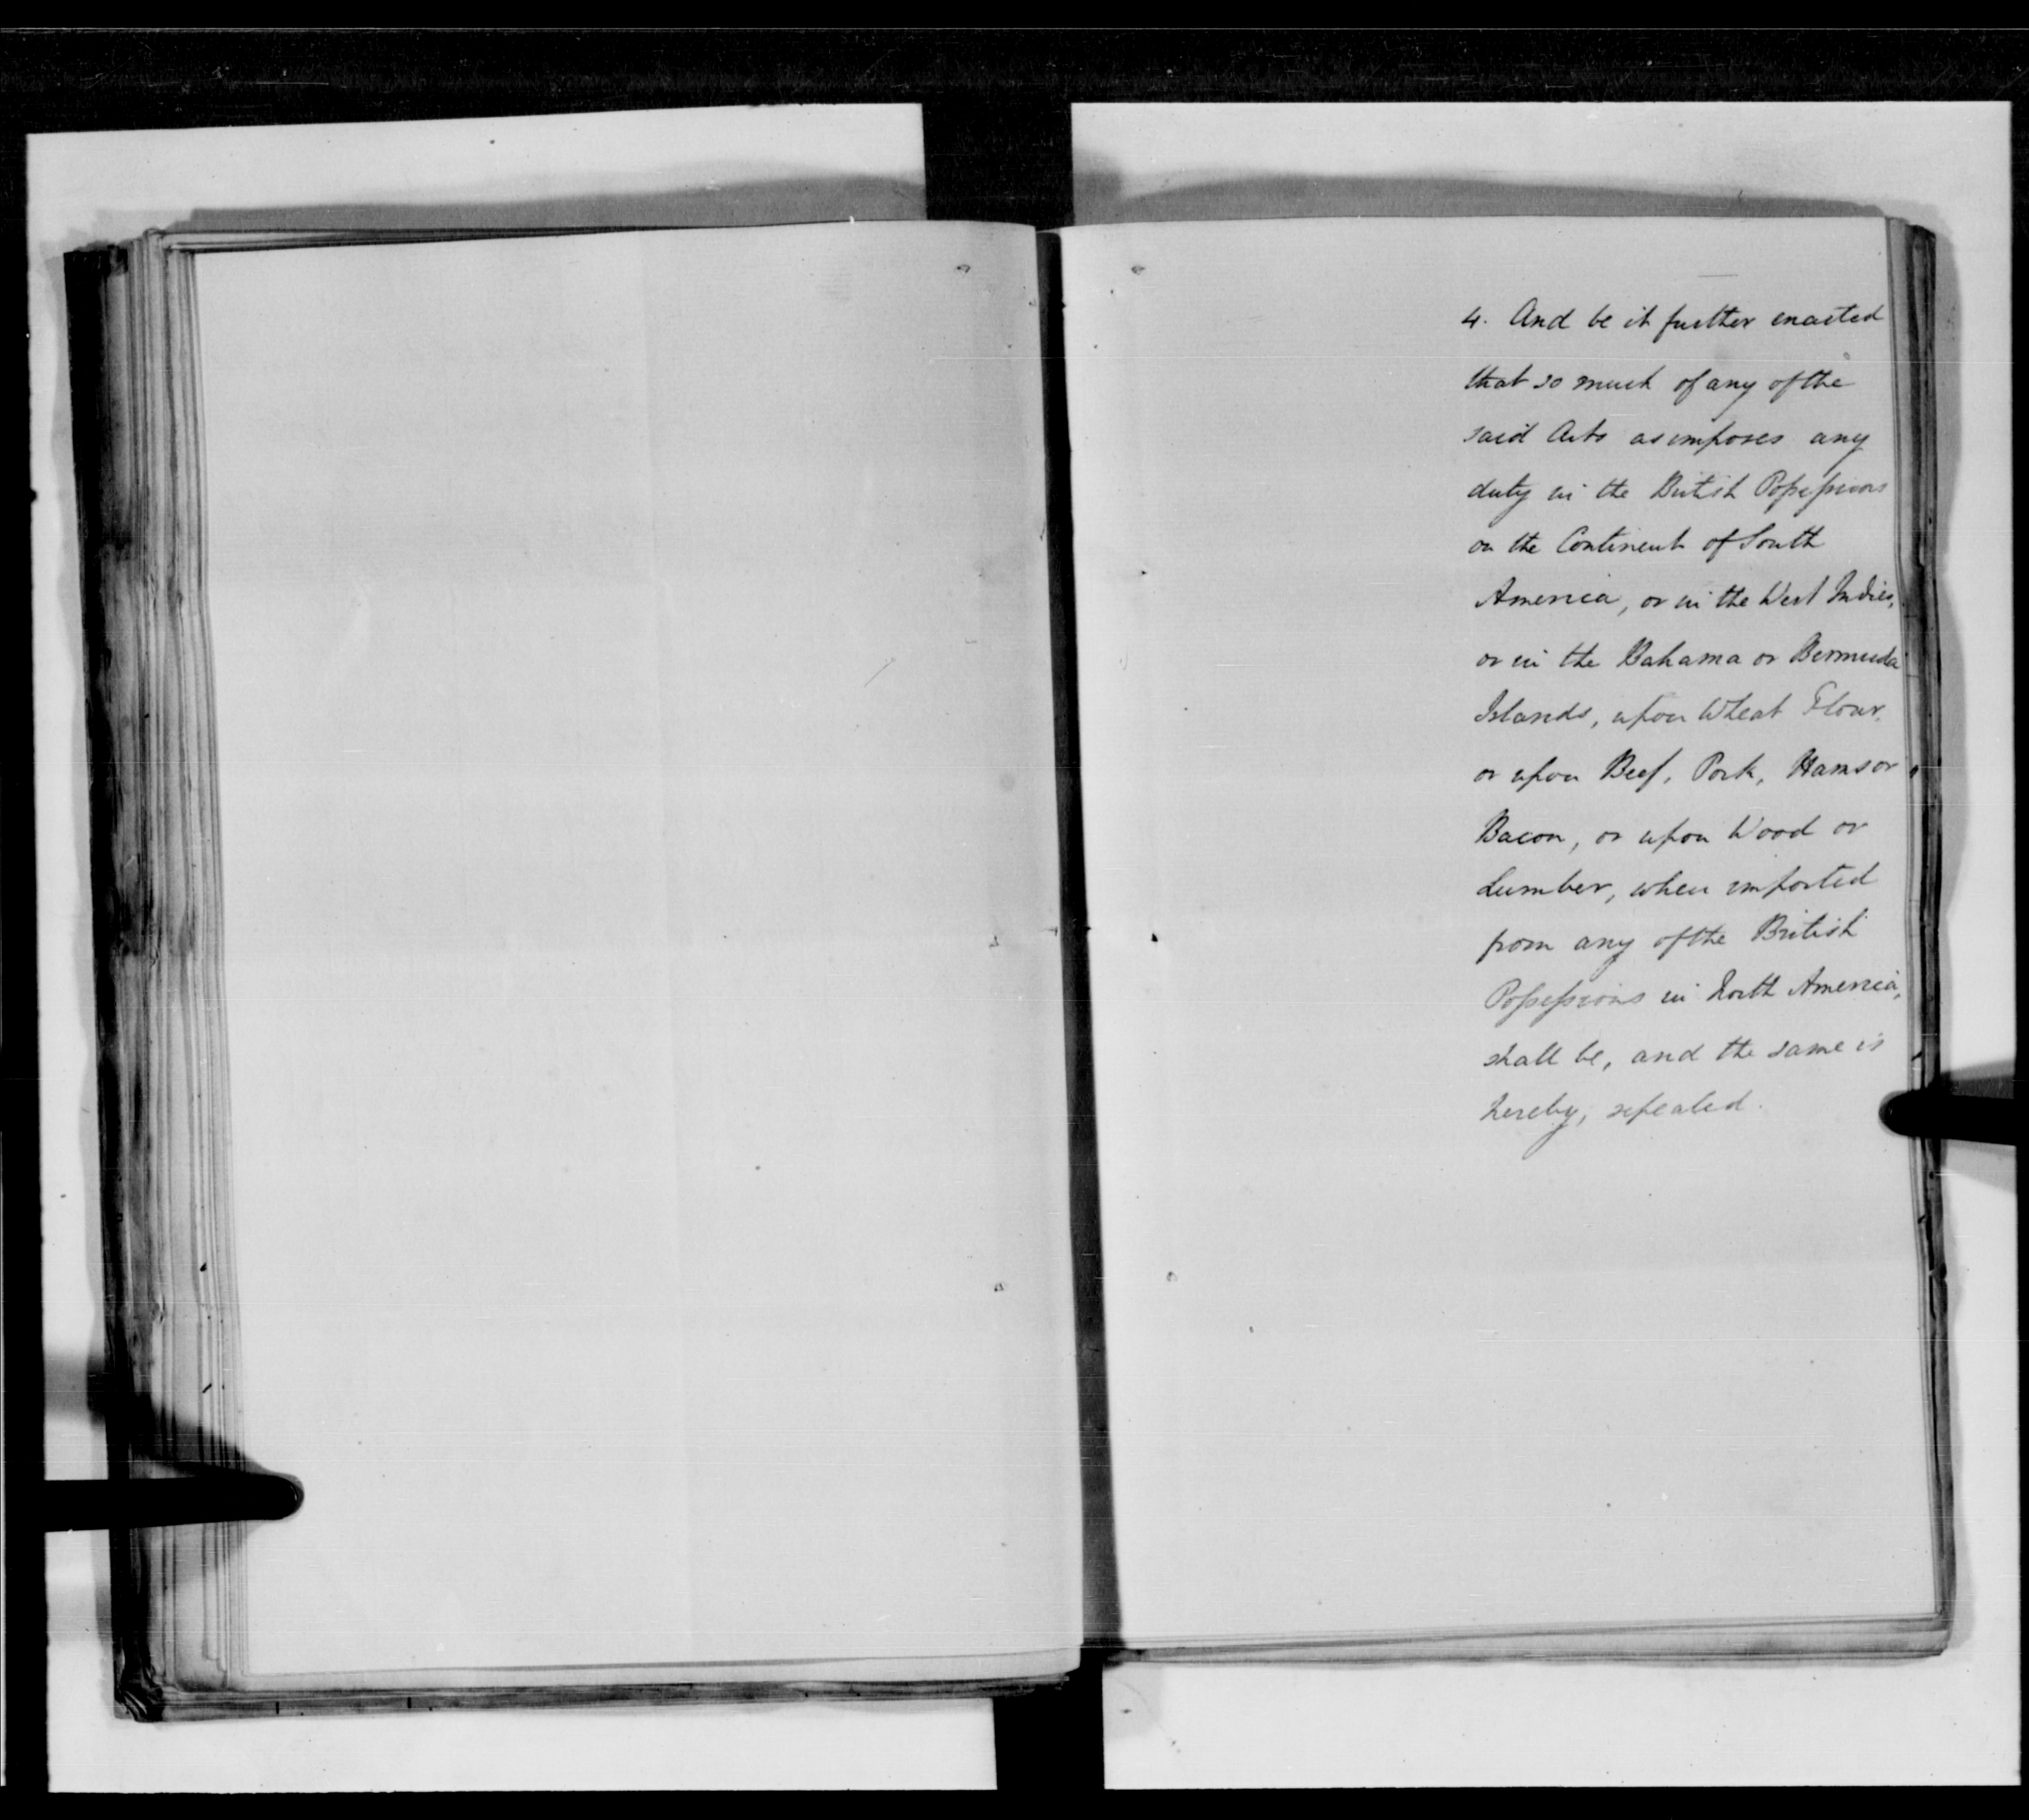 4. And be it further enacted
that so much of any of the
said Acts as imposes any
duty in the British Possessions
on the Continent of South
America, or in the West Indies,
or in the Bahama or Bermuda
Islands, upon Wheat Flour,
or upon Beef, Pork, Hams or
Bacon, or upon Wood or
Lumber, when imported
from any of the British
Possessions in North America,
shall be, and the same is
hereby, repealed.